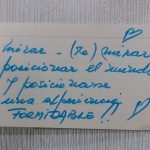 mirar - (re) mirar
posicionar el mundo
y posicionarse
una experiencia
FORMIDABLE!!!